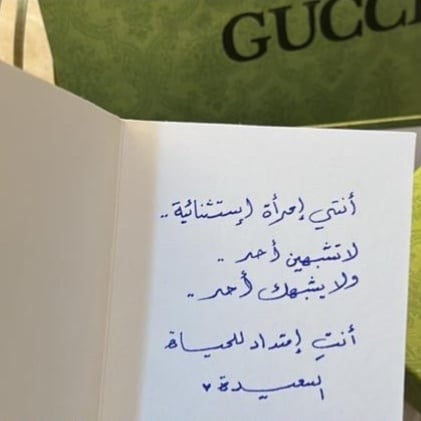 GUCCI
أنتي إمرأة إستثنائية..
لاتشبهين أحد ..
ولا يشبهك أحد ..
أنتِ إمتداد للحياة
السعيدة ♥